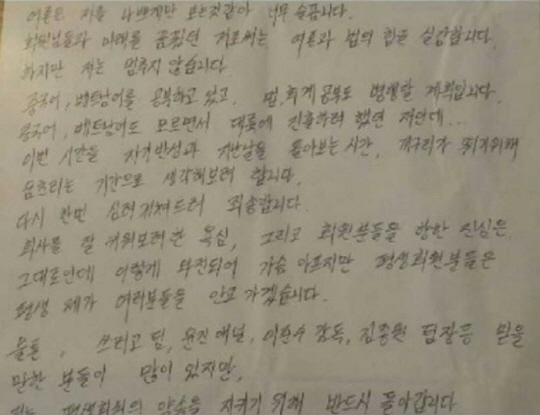 여론은 저를 나쁘게만 보는것같아 너무 슬픕니다.
회원님들과 미래를 꿈꿨던 저로써는 여론과 법의 힘을 실감합니다.
하지만 저는 멈추지 않습니다.
중국어, 베트남어를 공부하고 있고, 법, 회계 공부도 병행할 계획입니다.
중국어, 베트남어도 모르면서 대륙에 진출하려 했던 저인데...
이번 시간을 자기반성과 지난날을 돌아보는시간, 개구리가 뛰기위해
움츠리는 기간으로 생각해보려 합니다.
다시 한번 심려끼쳐드려 죄송합니다.
회사를 잘 키워보려한 욕심, 그리고 회원분들을 향한 진심은
그대로인데 이렇게 와전되어 가슴 아프지만 평생회원분들은
평생 제가 여러분들을 안고 가겠습니다.
물론, 쓰리고 팀, 윤진 애널, 감독, 김종원 팀장등 믿을
만한 분들이 많이 있지만,
저는 평생회원의 약속을 지키기 위해 반드시 돌아갑니다